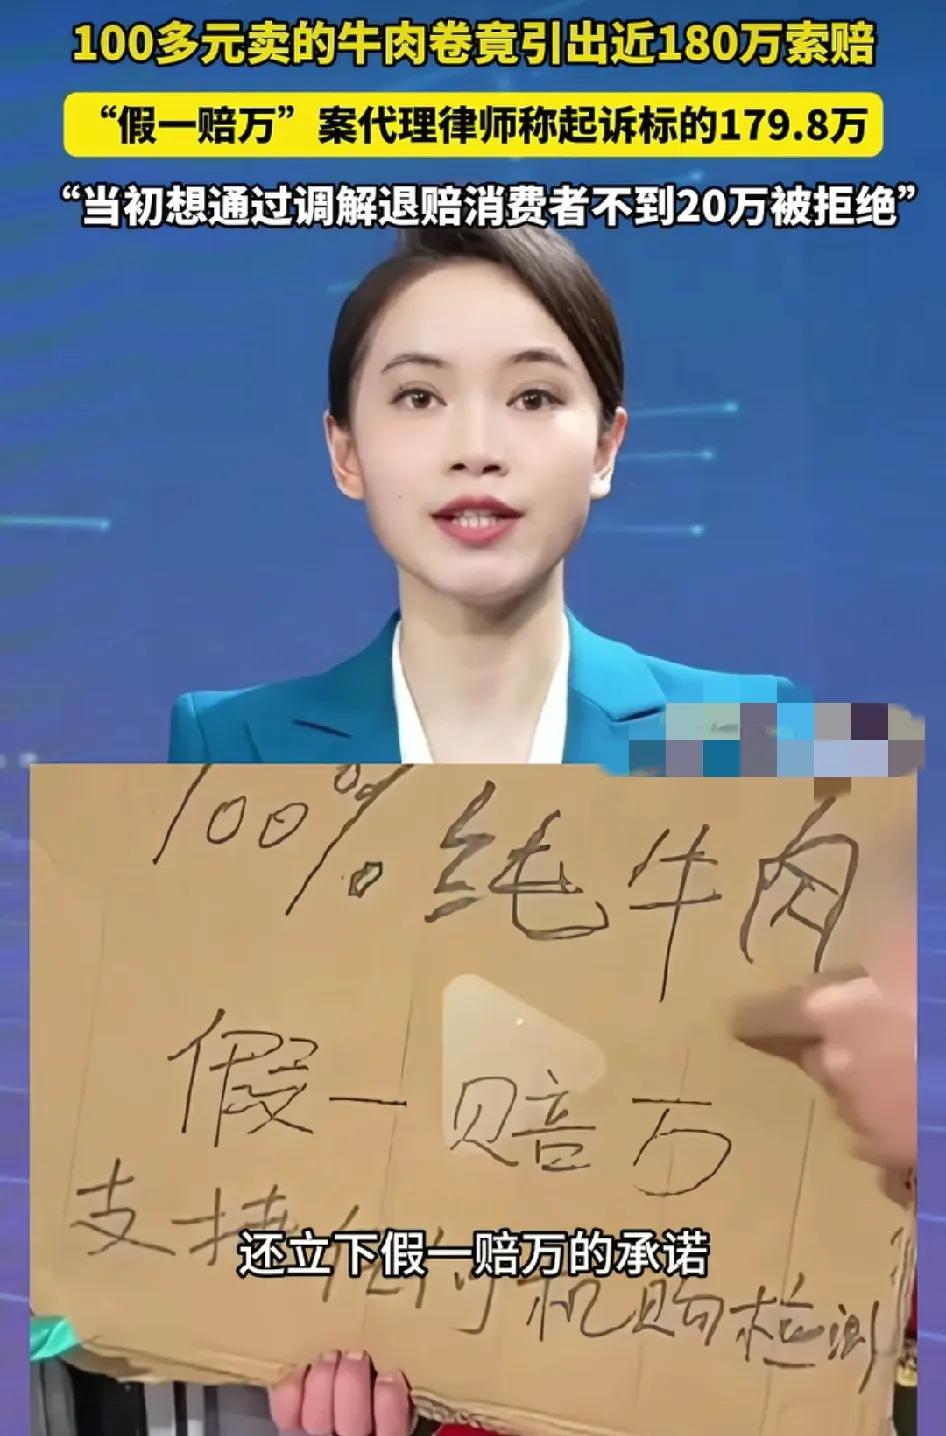 100多元卖的牛肉卷竟引出近180万索赔
“假一赔万”案代理律师称起诉标的179.8万
“当初想通过调解退赔消费者不到20万被拒绝”
100%纯牛肉
假一赔万
支持任何机购检测
还立下假一赔万的承诺